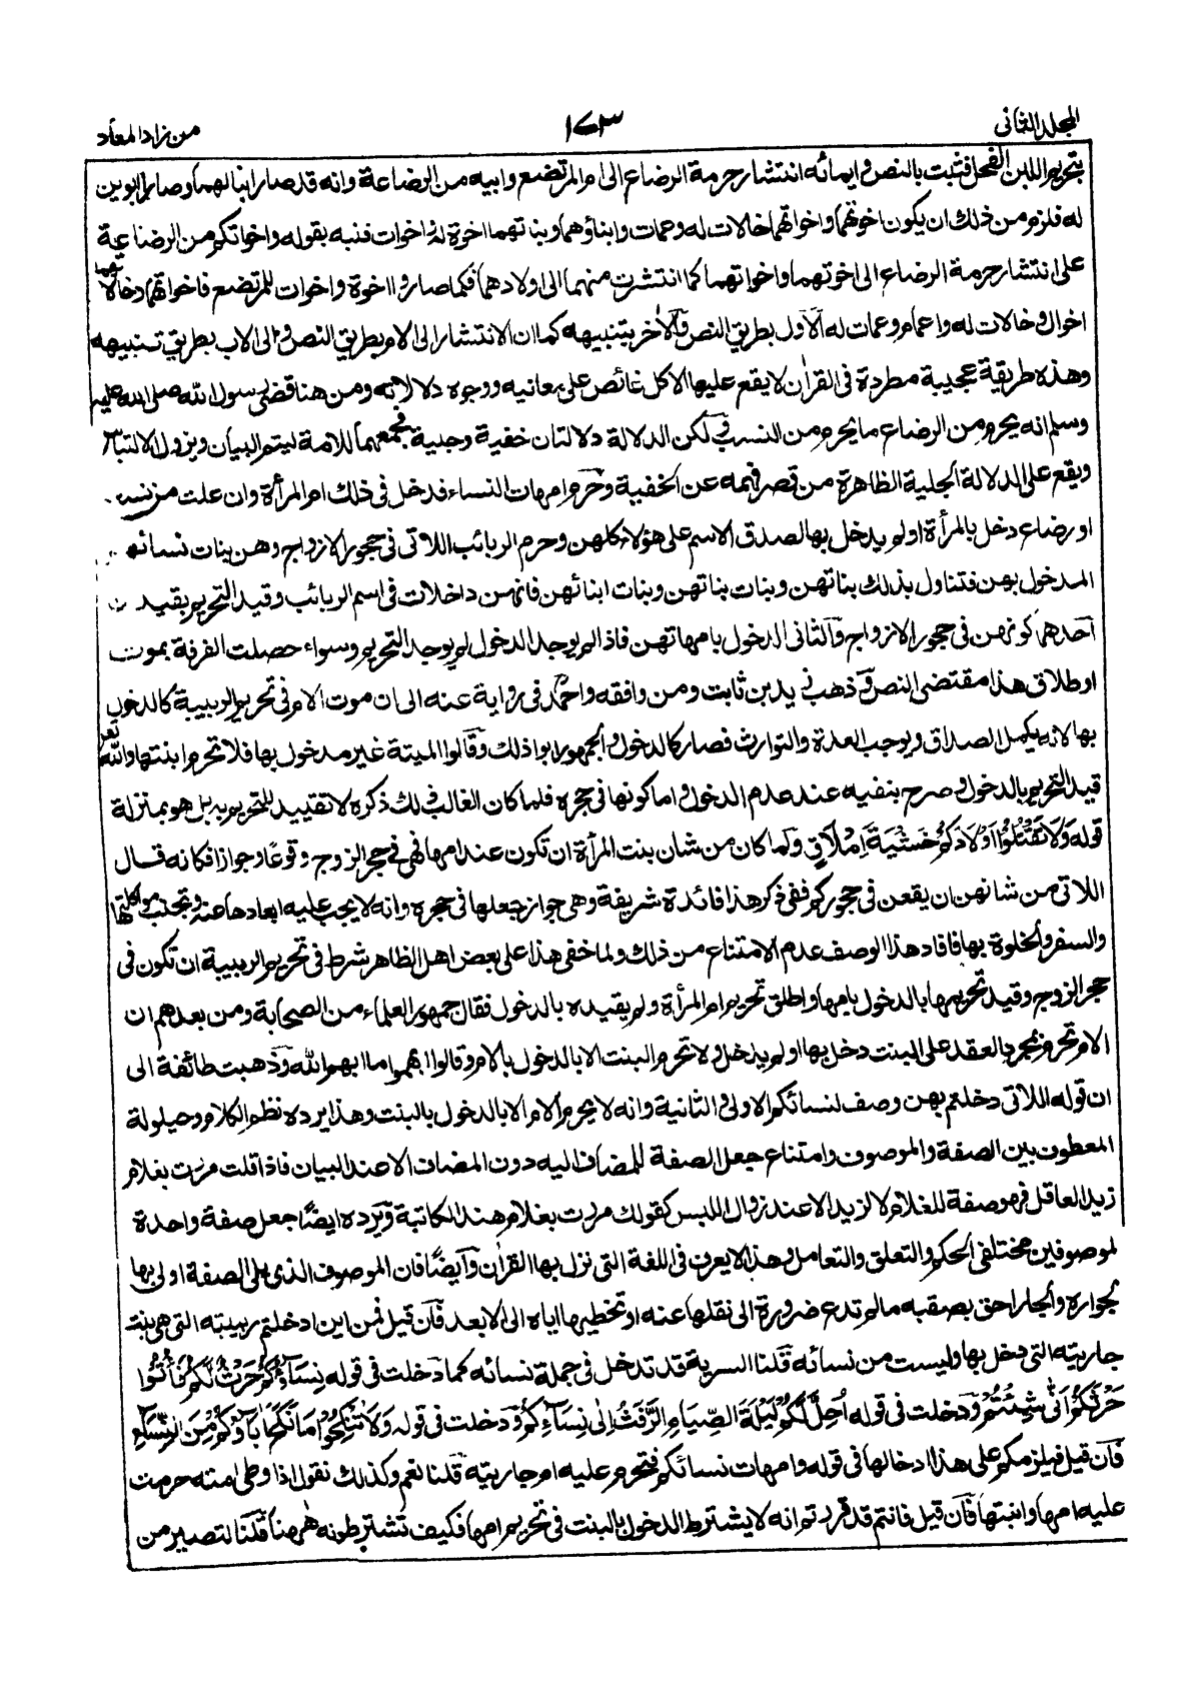 المجلد الثانى
١٧٣
من زاد المعاد
بتحريم اللبن الفحل فثبت بالنص وايمائه انتشار حرمة الرضاع الى ام المرتضع وابيه من الرضاعة وانه قد صار ابنا لهما وصارا ابوين
له فلزم من ذلك ان يكون اخوتهما واخواتهما خالات له وعمات وابناؤهما وبناتهما اخوة له واخوات فنبه بقوله واخواتكم من الرضاعة
على انتشار حرمة الرضاع الى اخوتهما واخواتهما كما انتشرت منهما الى اولادهما فكما صاروا اخوة واخوات للمرتضع فاخواتهما وخالاتهما
اخوال وخالات له واعمام وعمات له الاول بطريق النص والآخر بتنبيهه كما ان الانتشار الى الام بطريق النص والى الاب بطريق تنبيهه
وهذه طريقة عجيبة مطردة فى القرآن لا يقع عليها الا كل غائص على معانيه ووجوه دلالاته ومن هنا قضى رسول الله صلى الله عليه
وسلم انه يحرم من الرضاع ما يحرم من النسب ولكن الدلالة دلالتان خفية وجلية فجمعهما للامة ليتم البيان ويزول الالتباس
ويقع على الدلالة الجلية الظاهرة من قصر فهمه عن الخفية وحرم امهات النساء فدخل فى ذلك ام المرأة وان علت من نسب
او رضاع دخل بالمرأة او لم يدخل بها لصدق الاسم على هؤلاء كلهن وحرم الربائب اللاتى فى حجور الازواج وهن بنات نسائهم
المدخول بهن فتناول بذلك بناتهن وبنات بناتهن وبنات ابنائهن فانهن داخلات فى اسم الربائب وقيد التحريم بقيدين
احدهما كونهن فى حجور الازواج والثانى الدخول بامهاتهن فاذا لم يوجد الدخول لم يوجد التحريم وسواء حصلت الفرقة بموت
او طلاق هذا مقتضى النص وذهب زيد بن ثابت ومن وافقه واحمد فى رواية عنه الى ان موت الام فى تحريم الربيبة كالدخول
بها لانه يكمل الصداق ويوجب العدة والتوارث فصار كالدخول والجمهور ابوا ذلك وقالوا الميتة غير مدخول بها فلا تحرم ابنتها والله تعالى
قيد التحريم بالدخول وصرح بنفيه عند عدم الدخول واما كونها فى حجره فلما كان الغالب ذلك ذكره لا تقييد للتحريم به بل هو بمنزلة
قوله وَلَا تَقْتُلُوا اَوْلَادَكُمْ خَشْيَةَ اِمْلَاقٍ ولما كان من شان بنت المرأة ان تكون عند امها فهى فى حجر الزوج وقوعًا وجوازا فكانه قال
اللاتى من شانهن ان يقعن فى حجوركم ففى ذكر هذا فائدة شريفة وهى جواز جعلها فى حجره وانه لا يجب عليه ابعادها عنه وتجنب مواكلتها
والسفر والخلوة بها فافاد هذا الوصف عدم الامتناع من ذلك ولما خفى هذا على بعض اهل الظاهر شرط فى تحريم الربيبة ان تكون فى
حجر الزوج وقيد تحريمها بالدخول بامها واطلق تحريم ام المرأة ولم يقيده بالدخول فقال جمهور العلماء من الصحابة ومن بعدهم ان
الام تحرم بمجرد العقد على البنت دخل بها او لم يدخل ولا تحرم البنت الا بالدخول بالام وقالوا ابهموا ما ابهم الله وذهبت طائفة الى
ان قوله اللاتى دخلتم بهن وصف لنسائكم الاولى والثانية وانه لا يحرم الام الا بالدخول بالبنت وهذا يرده نظم الكلام وحيلولة
المعطوف بين الصفة والموصوف وامتناع جعل الصفة للمضاف اليه دون المضاف الا عند البيان فاذا قلت مررت بغلام
زيد العاقل فهو صفة للغلام لا لزيد الا عند زوال اللبس كقولك مررت بغلام هند الكاتبة ويرده ايضًا جعل صفة واحدة
لموصوفين مختلفى الحكم والتعلق والتعامل وهذا لا يعرف فى اللغة التى نزل بها القرآن وايضًا فان الموصوف الذى يلى الصفة اولى بها
لجواره والجار احق بصقبه ما لم تدع ضرورة الى نقلها عنه او تخطيها اياه الى الابعد فان قيل فمن اين ادخلتم ربيبته التى هى بنت
جاريته التى دخل بها وليست من نسائه قلنا السرية قد تدخل فى جملة نسائه كما دخلت فى قوله نِسَاؤُكُمْ حَرْثٌ لَّكُمْ فَأْتُوا
حَرْثَكُمْ اَنّٰى شِئْتُمْ ودخلت فى قوله اُحِلَّ لَكُمْ لَيْلَةَ الصِّيَامِ الرَّفَثُ اِلٰى نِسَاءِكُمْ ودخلت فى قوله وَلَا تَنْكِحُوا مَا نَكَحَ اٰبَاؤُكُمْ مِّنَ النِّسَاءِ
فان قيل فيلزمكم على هذا ادخالها فى قوله وامهات نسائكم فتحرم عليه ام جاريته قلنا نعم وكذلك نقول اذا وطى امته حرمت
عليه امها وابنتها فان قيل فانتم قد قررتم انه لا يشترط الدخول بالبنت فى تحريم امها فكيف تشترطونه ههنا قلنا لتصير من